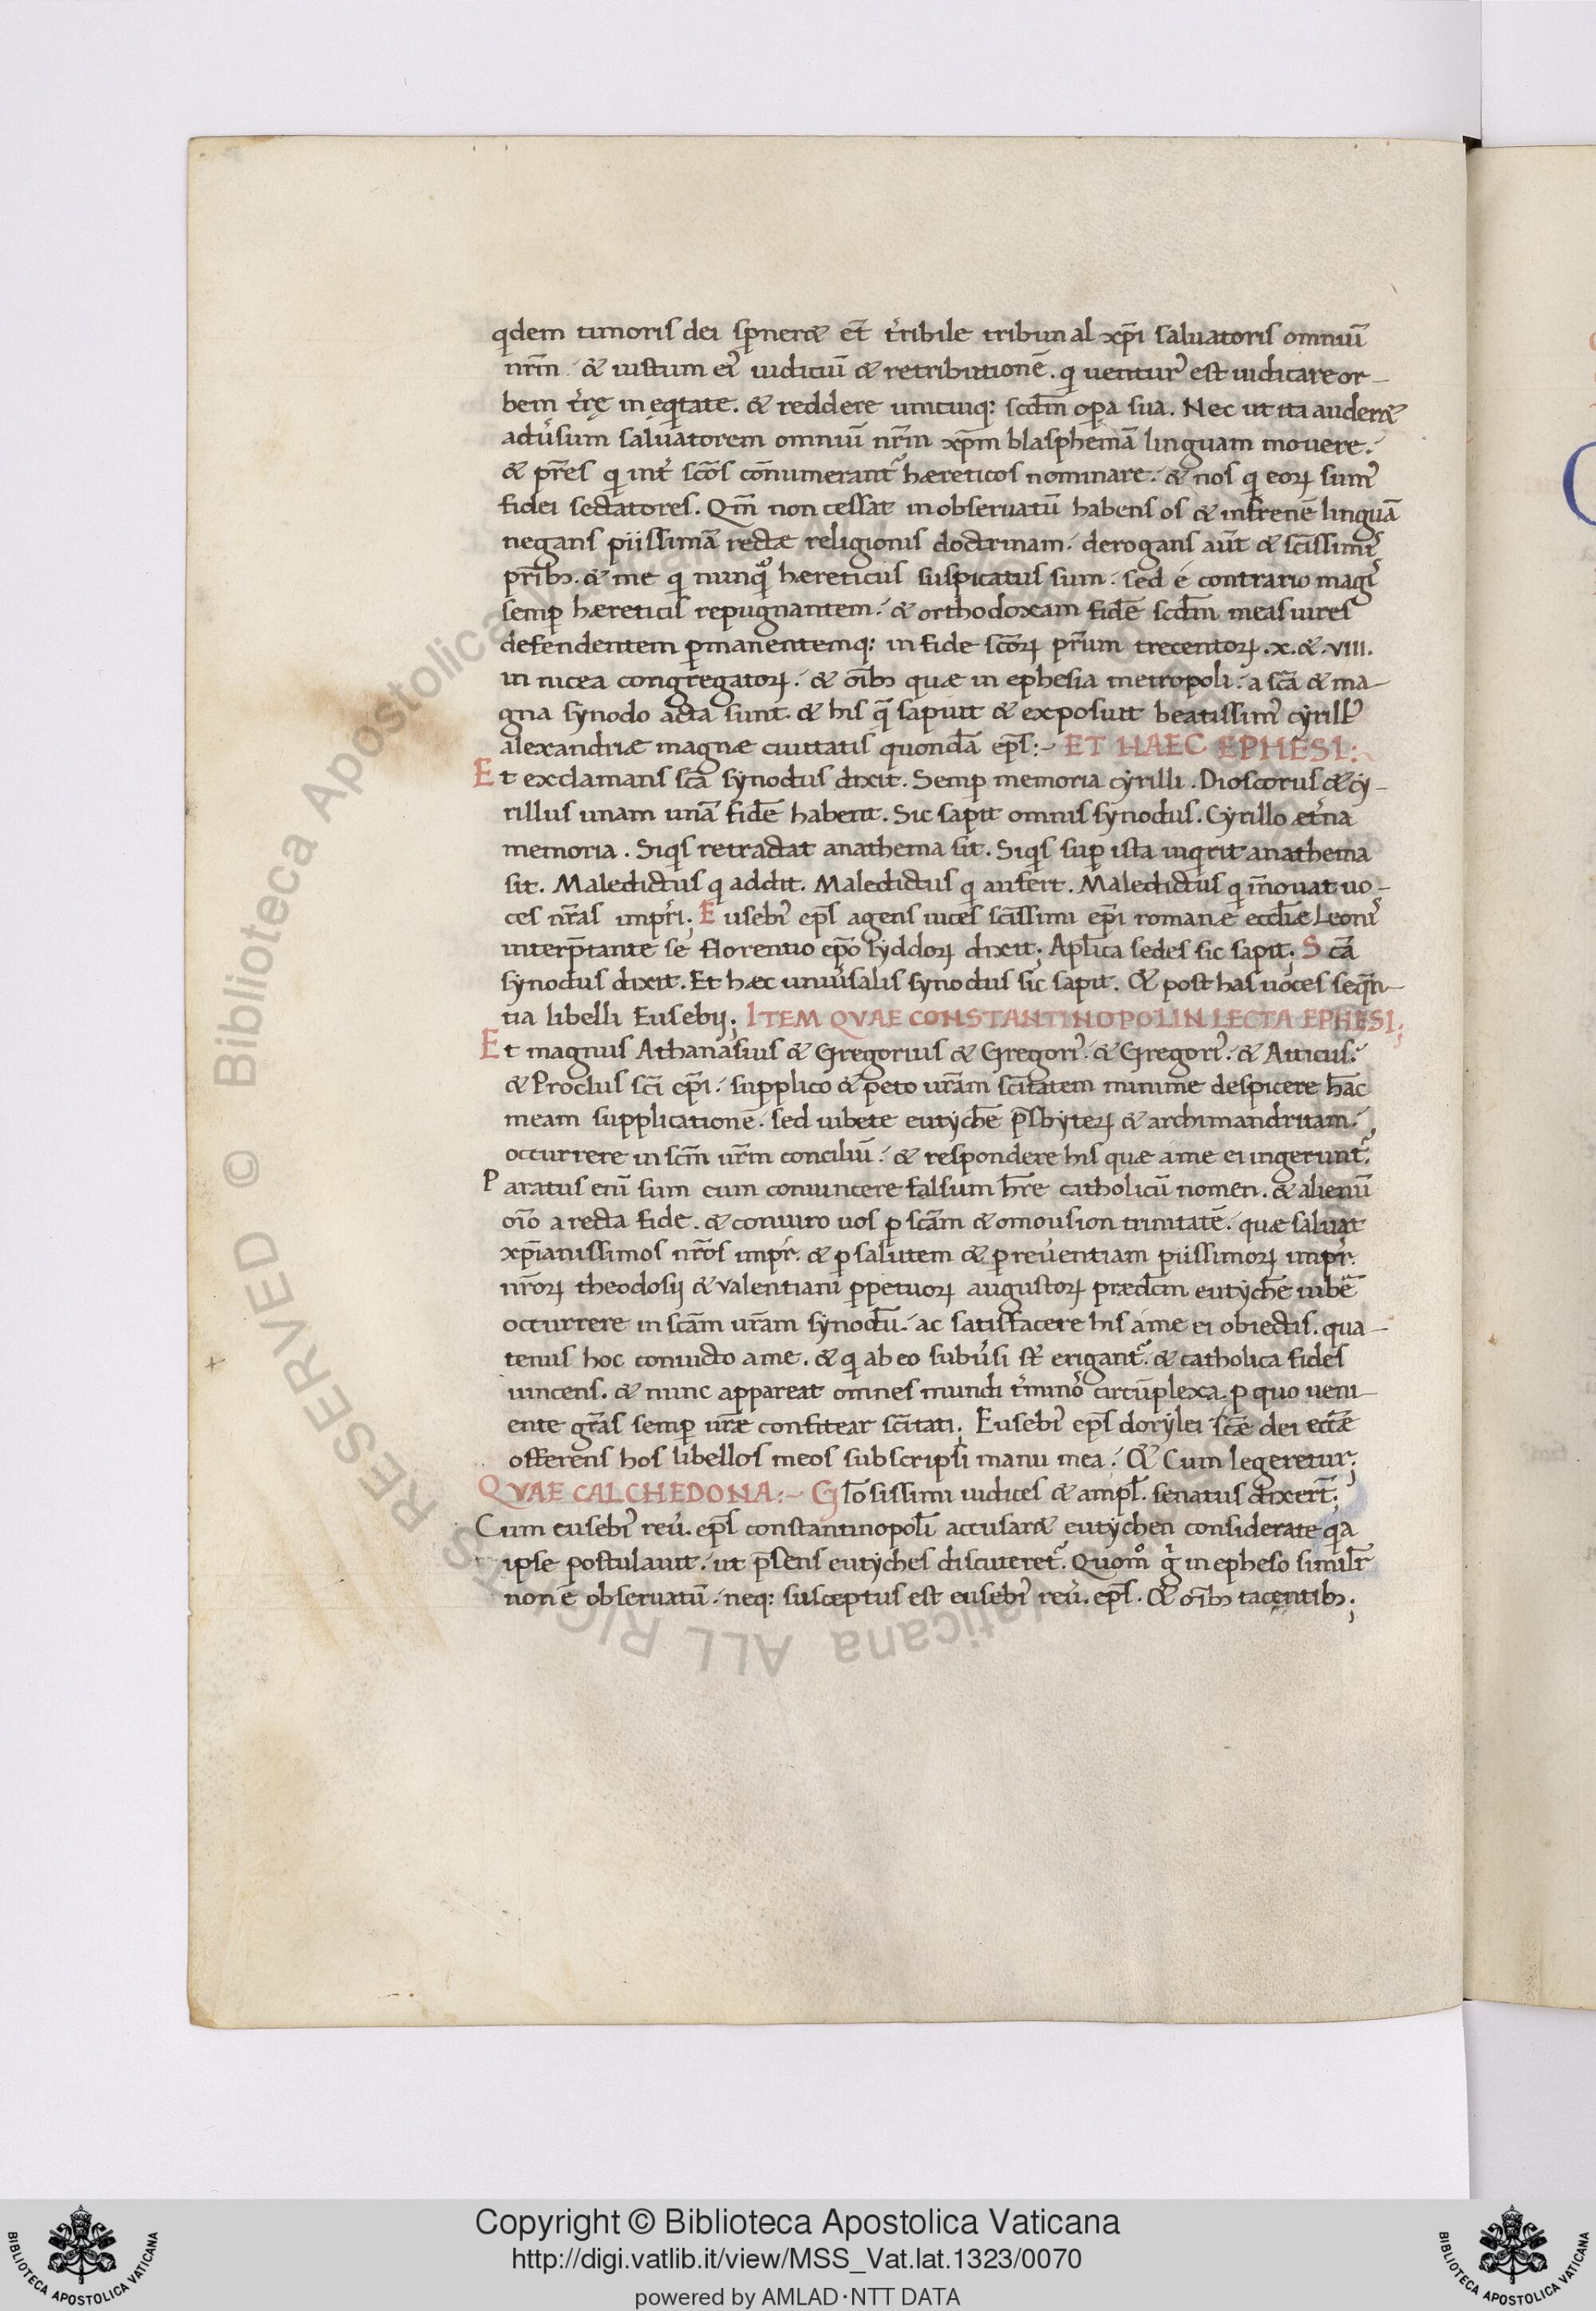 q̇dem timoris dei sp̱neret et̄ t̓ribile tribunal xp̄i saluatoris omniū
nr̄m. & iustum ei᾽ iudiciū & retributionē. q̇ uentur᾽ est iudicare or-
bem t̓rę in eq̇tate. & reddere unicuiq: scd̄m op̱a sua. Nec ut ita auderet
adu̓sum saluatorem omniū nr̄m xp̄m blasphemā linguam mouere.
& pr̄es q̇ int̓ sc̄os con̄numerant᾽ hæreticos nominare. & nos q̇ eoꝝ sum᾽
fidei sectatores. Qm̄ non cessat inobseruatū habens os & infrenē linguā
negans piissimā rectæ religionis doctrinam. derogans aut̄ & sc̄issimis
pr̄ibꝫ. & me q̇ nunq̊ hæreticus suspicatus sum. sed e contrario magis
semꝑ hæreticis repugnantem. & orthodoxam fidē scd̄m meas uires
defendentem ꝑmanentemq: in fide sc̄oꝝ pr̄um trecentoꝝ .x.&.VIII.
in nicea congregatoꝝ. & oīb; quæ in ephesia metropoli. a sc̄a & ma-
gna synodo acta sunt. & his q̄ sapuit & exposuit beatissim᾽ cyrill᾽
alexandriæ magnæ ciuitatis quondā ep̄s:- ET HAEC EPHESI:
Et exclamans sc̄a synodus dixit. Semꝑ memoria cyrilli. Dioscorus & cy-
rillus unam unā fidē habent. Sic sapit omnis synodus. Cyrillo æt̓na
memoria. Siq̇s retractat anathema sit. Siq̇s suꝑ ista inq̇rit anathema
sit. Maledictus q̇ addit. Maledictus q̇ aufert. Maledictus q̇ in̄ouat uo-
ces nr̄as impr̓i; Eusebi᾽ ep̄s agens uices sc̄issimi ep̄i romanæ eccl̄iæ Leonis
interp̄tante se florentio ep̄o lyddoꝝ dixit; Apl̄ica sedes sic sapit; Sc̄a
synodus dixit. Et hæc uniu̓salis synodus sic sapit. & post has uoces seq̄n-
tia libelli Eusebij; ITEM QVAE CONSTANTINOPOLIN LECTA EPHESI;
Et magnus Athanasius & Gregorius & Gregori᾽. & Gregori᾽. & Atticus.
& Proclus sc̄i ep̄i. supplico & peto ur̄am sc̄itatem minime despicere hāc
meam supplicationē. sed iubete eutychē p̄sbyteꝝ & archimandritam.
occurrere in sc̄m ur̄m conciliū. & respondere his quæ a me ei ingerunt᾽.
Paratus eni᷈ sum eum conuincere falsum hr̄e catholicū nomen. & alienū
oīo a recta fide. & coniuro uos ꝑ sc̄am & omousion trinitatē. quæ saluat
xp̄ianissimos nr̄os impr̓. & ꝑ salutem & ꝑ reuentiam piissimoꝝ impr̓.
nr̄oꝝ theodosij & valentiani ꝑpetuoꝝ augustoꝝ prædc̄m eutychē iubē
occurrere in sc̄am ur̄am synodū. ac satisfacere his a me ei obiectis. qua-
tenus hoc conuicto a me. & q̇ ab eo subu̓si st̄ erigant᾽. & catholica fides
uincens. & nunc appareat omnes mundi t̓minos circūplexa. ꝑ quo ueni-
ente gr̄as semꝑ ur̄æ confitear sc̄itati; Eusebi᾽ ep̄s dorylei sc̄æ dei eccl̄æ
offerens hos libellos meos subscripsi manu mea. & Cum legeretur;
QVAE CALCHEDONA:- Gl̄osissimi iudices & ampl̄. senatus dixert̄;
Cum eusebi᾽ reu̓. ep̄s constantinopolī accusaret eutychen considerate q̇a
ipse postulauit. ut p̄sens eutyches discuteret᾽. Quom̊ g̓ in epheso similr̄
non ē obseruatū. neq: susceptus est eusebi᾽ reu̓. ep̄s. & oīb; tacentib;
Copyright © Biblioteca Apostolica Vaticana
http://digi.vatlib.it/view/MSS_Vat.lat.1323/0070
powered by AMLAD·NTT DATA
BIBLIOTECA APOSTOLICA VATICANA
BIBLIOTECA APOSTOLICA VATICANA